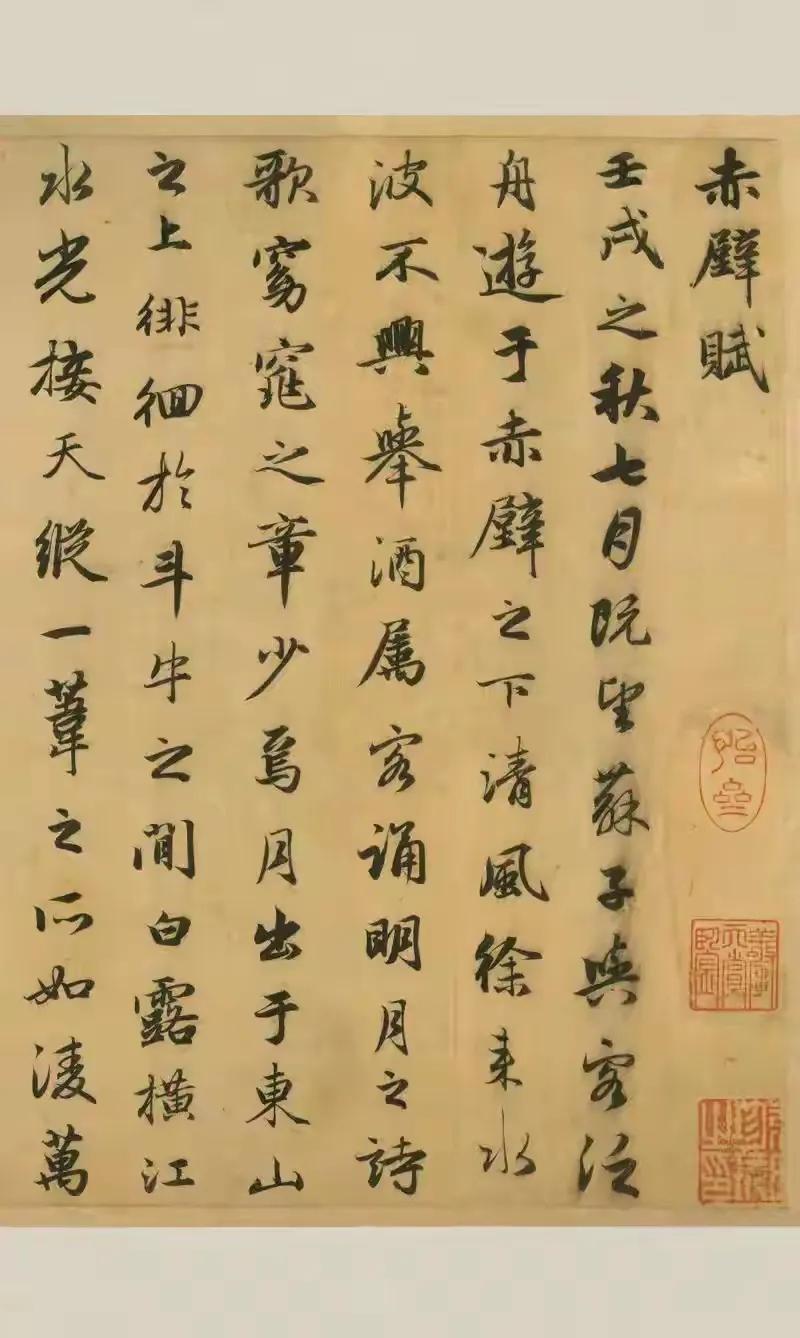 赤壁賦
壬戌之秋七月既望蘇子與客泛
舟遊于赤壁之下清風徐來水
波不興舉酒属客誦明月之詩
歌窈窕之章少焉月出于東山
之上徘徊於斗牛之間白露橫江
水光接天縱一葦之所如淩萬